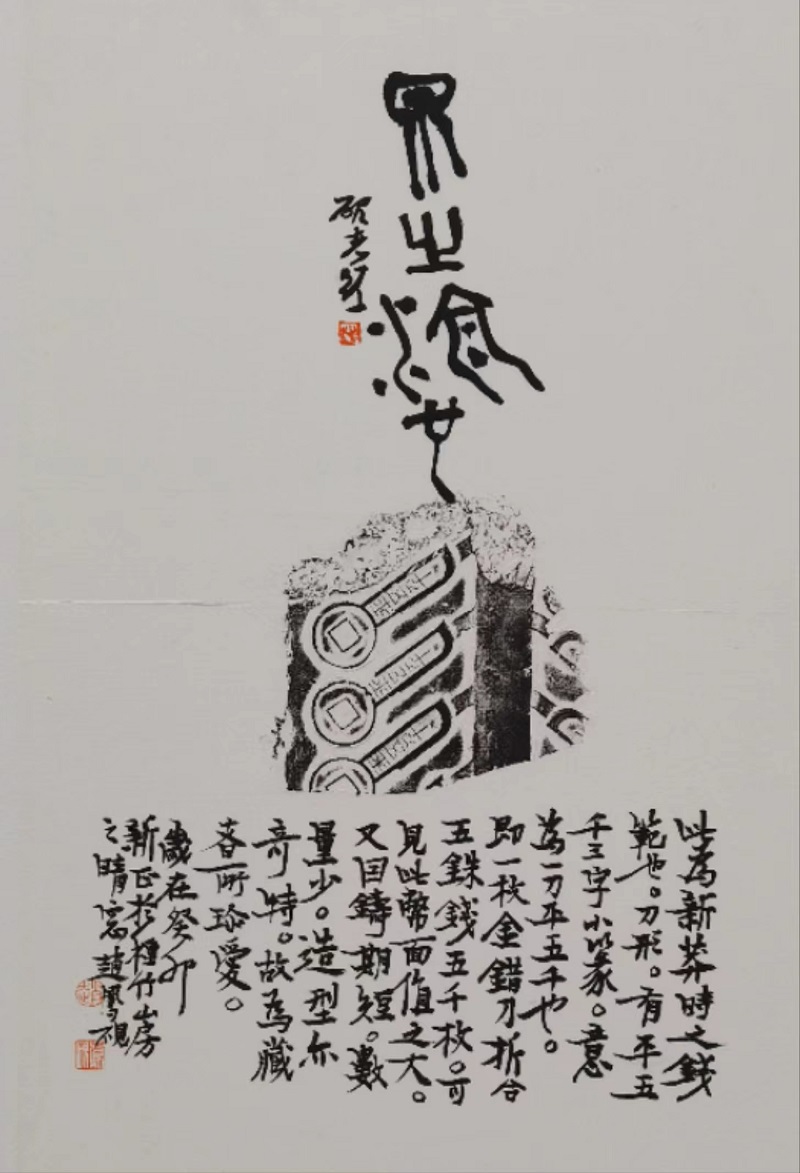 之
此為新莽時之錢
範也。刀形。有平五
千三字小篆。意
為一刀平五千也。
即一枚金錯刀折合
五銖錢五千枚。可
見此幣面值之大。
又因鑄期短。數
量少。造型亦
奇特。故為藏
者所珍愛。
歲在癸卯
新正於種竹山房
之晴窓趙